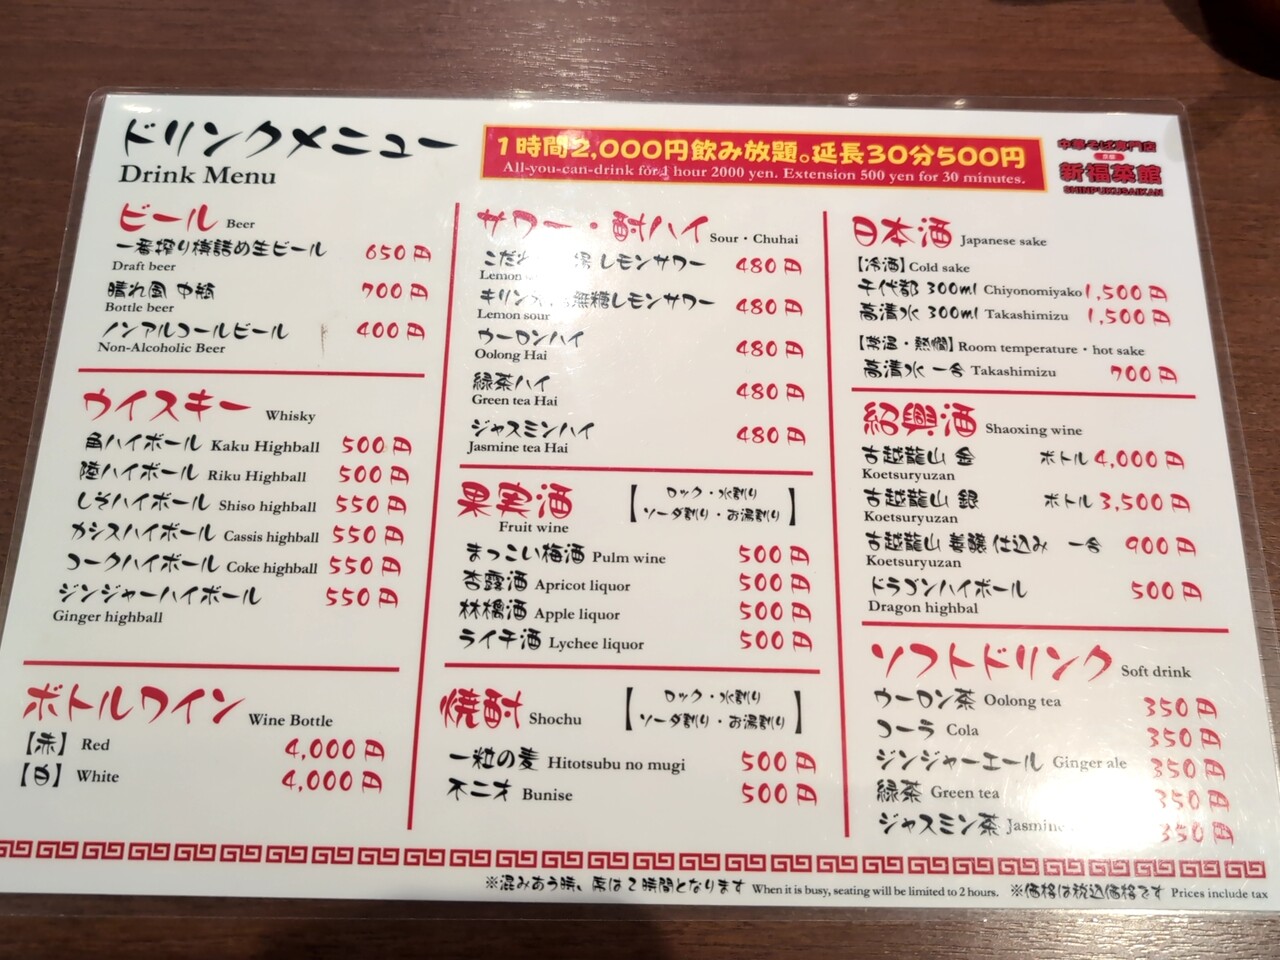 ドリンクメニュー
Drink Menu
1時間2,000円飲み放題。延長30分500円
All-you-can-drink for 1 hour 2000 yen. Extension 500 yen for 30 minutes.
中華そば専門店
京都
新福菜館
SHINPUKUSAIKAN
ビール Beer
一番搾り樽詰め生ビール 650円
Draft beer
晴れ風 中瓶 700円
Bottle beer
ノンアルコールビール 400円
Non-Alcoholic Beer
ウイスキー Whisky
角ハイボール Kaku Highball 500円
陸ハイボール Riku Highball 500円
しそハイボール Shiso highball 550円
カシスハイボール Cassis highball 550円
コークハイボール Coke highball 550円
ジンジャーハイボール 550円
Ginger highball
ボトルワイン Wine Bottle
【赤】 Red 4,000円
【白】 White 4,000円
サワー・酎ハイ Sour・Chuhai
こだわ レモンサワー 480円
Lemon
キリン 無糖レモンサワー 480円
Lemon sour
ウーロンハイ 480円
Oolong Hai
緑茶ハイ 480円
Green tea Hai
ジャスミンハイ 480円
Jasmine tea Hai
果実酒 【ロック・水割り
ソーダ割り・お湯割り】
Fruit wine
まっこい梅酒 Pulm wine 500円
杏露酒 Apricot liquor 500円
林檎酒 Apple liquor 500円
ライチ酒 Lychee liquor 500円
焼酎 Shochu 【ロック・水割り
ソーダ割り・お湯割り】
一粒の麦 Hitotsubu no mugi 500円
不二才 Bunise 500円
日本酒 Japanese sake
【冷酒】Cold sake
千代都 300ml Chiyonomiyako 1,500円
高清水 300ml Takashimizu 1,500円
【常温・熱燗】Room temperature・hot sake
高清水 一合 Takashimizu 700円
紹興酒 Shaoxing wine
古越龍山 金 ボトル 4,000円
Koetsuryuzan
古越龍山 銀 ボトル 3,500円
Koetsuryuzan
古越龍山 善醸仕込み 一合 900円
Koetsuryuzan
ドラゴンハイボール 500円
Dragon highbal
ソフトドリンク Soft drink
ウーロン茶 Oolong tea 350円
コーラ Cola 350円
ジンジャーエール Ginger ale 350円
緑茶 Green tea 350円
ジャスミン茶 Jasmine 350円
※混みあう時、席は2時間となります When it is busy, seating will be limited to 2 hours. ※価格は税込価格です Prices include tax